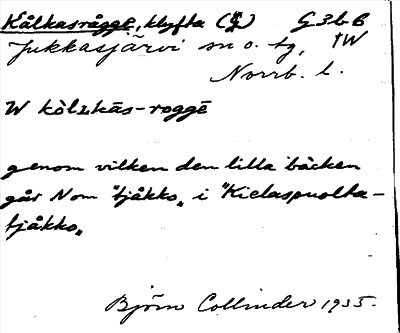 Kålkasrågge, klyfta (J) G 3 b B
Jukkasjärvi sn o. tg, TW
Norrb. l.
W kòlɩkās-roggē
genom vilken den lilla bäcken
går N om "tjåkko" i "Kielaspuolta-
tjåkko"
Björn Collinder 1935.